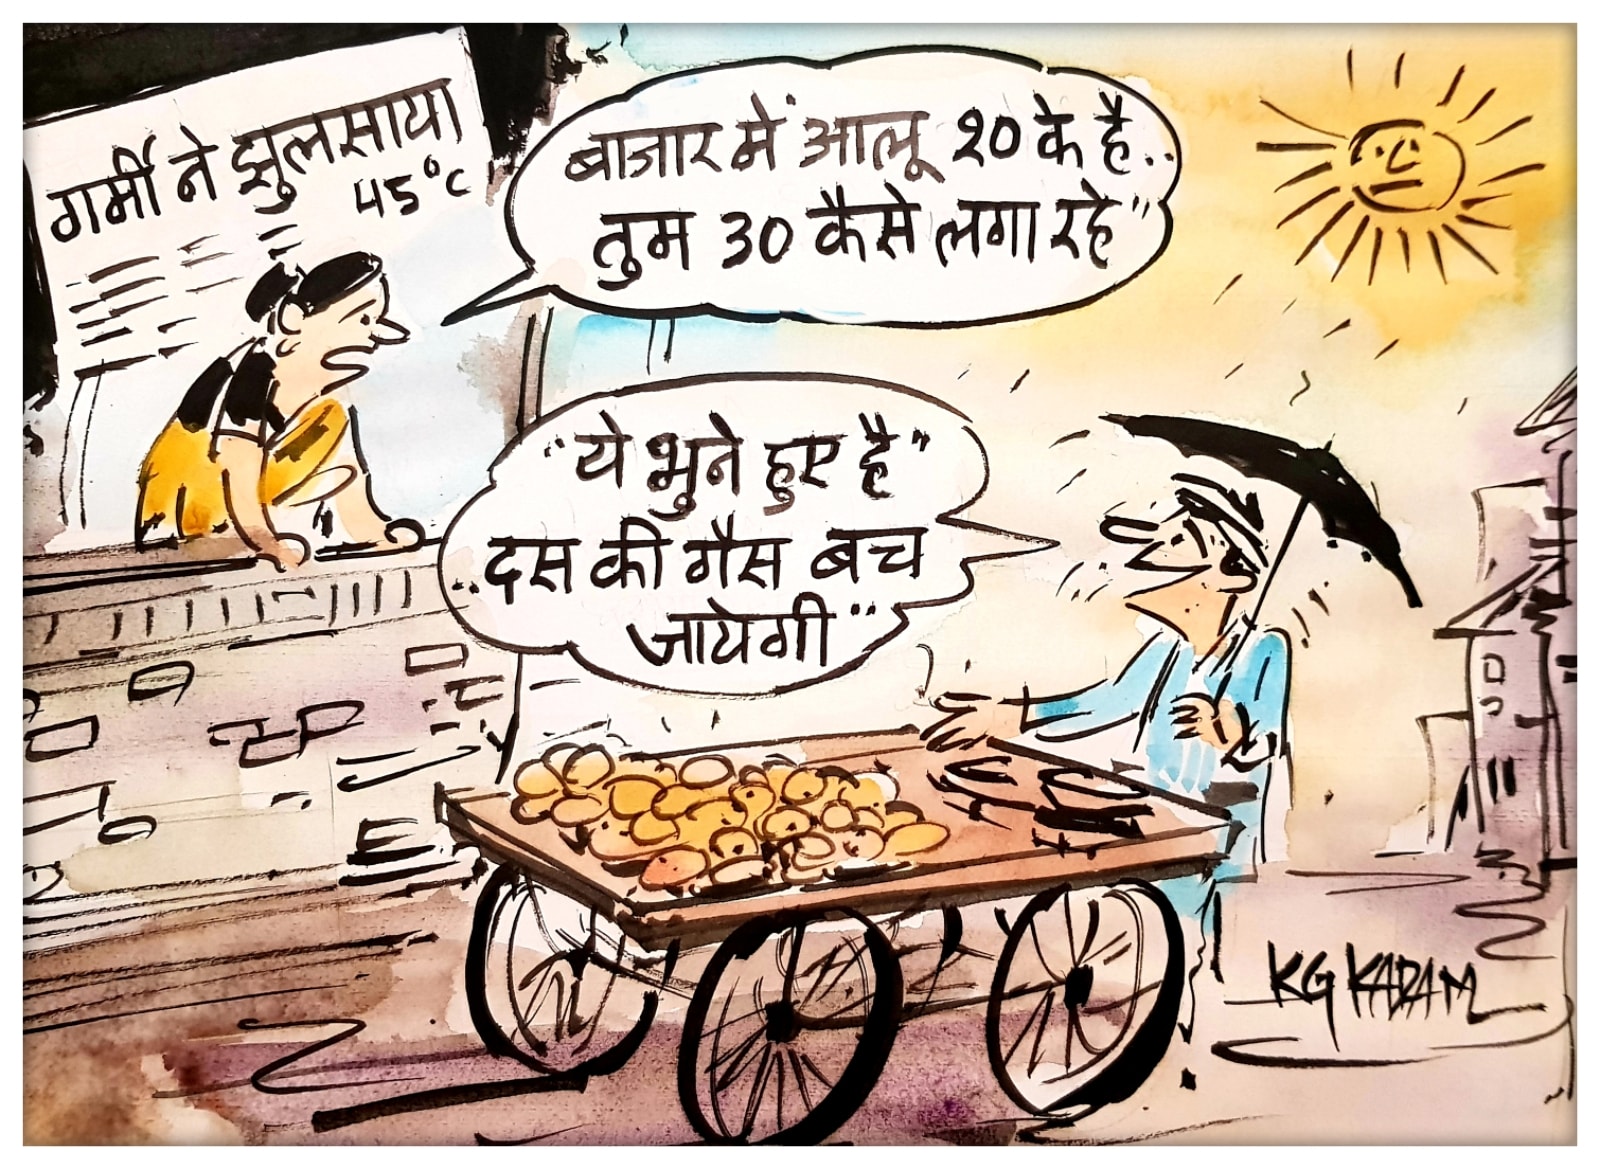 गर्मी ने झुलसाया
45°C
बाजार में आलू २० के है..
तुम 30 कैसे लगा रहे"
"ये भुने हुए है"
..दस की गैस बच
जायेगी"
KG KADAM